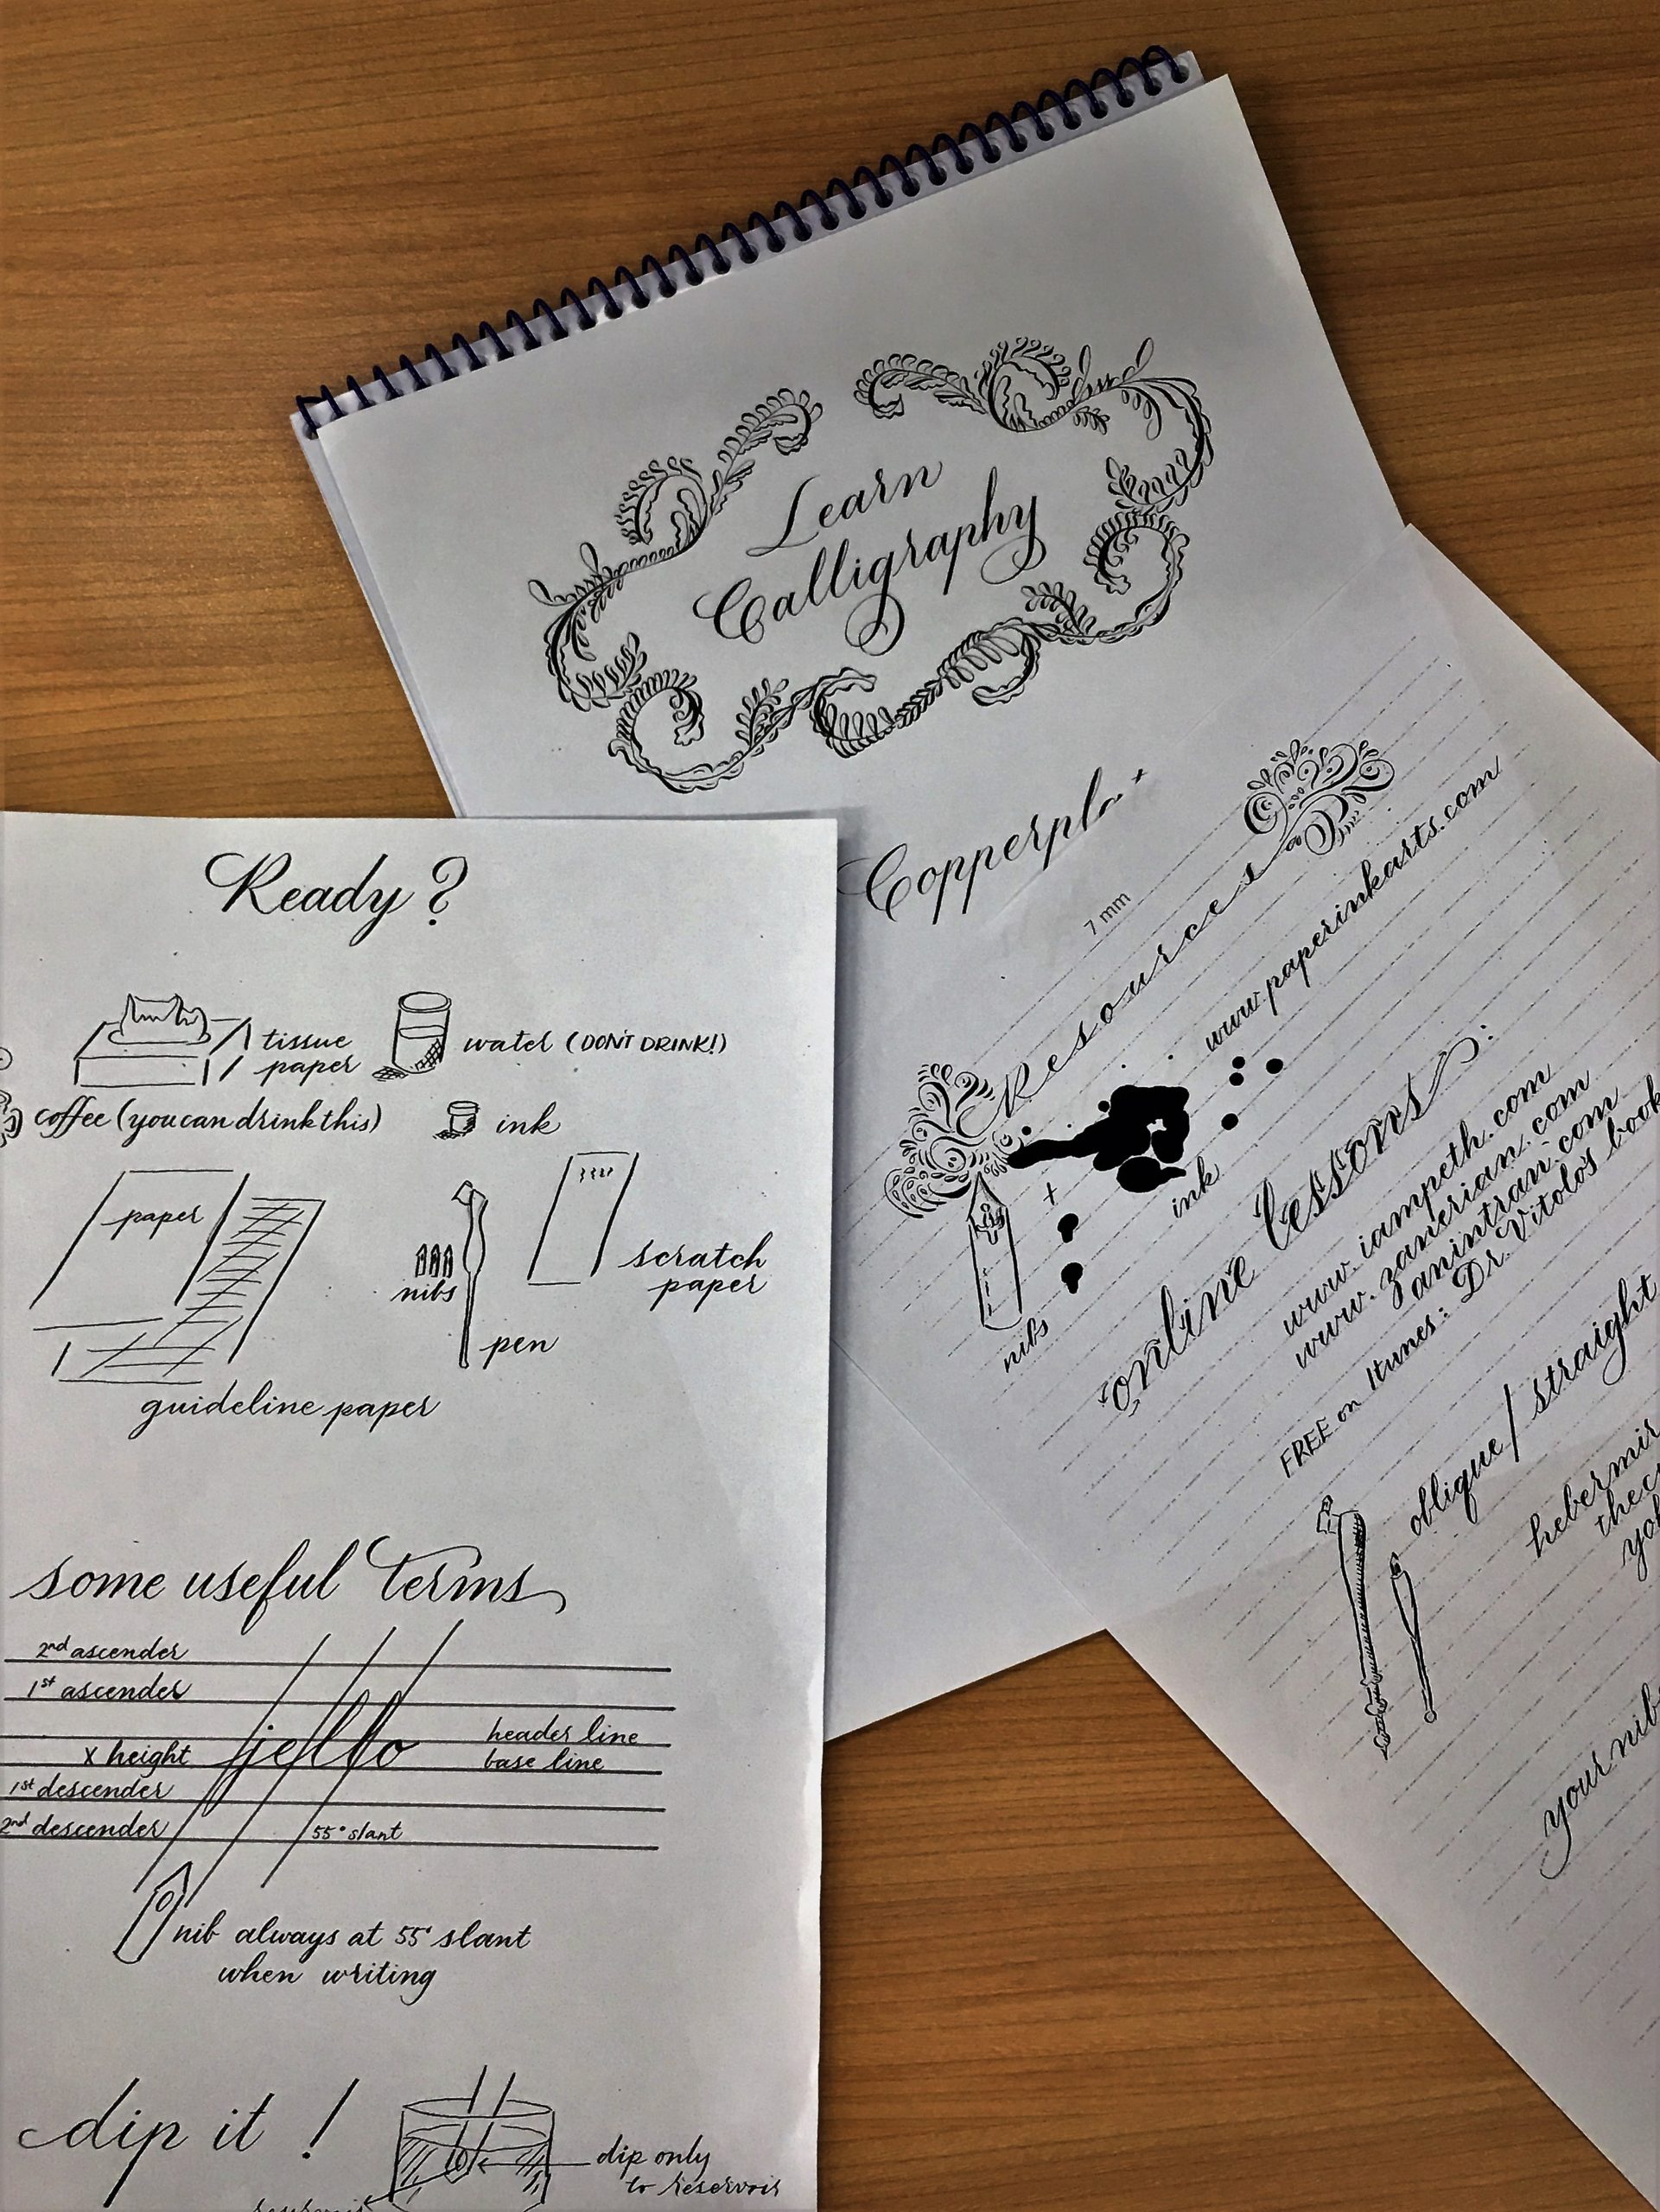 Learn
Calligraphy
Ready?
tissue
paper
water (DON'T DRINK!)
coffee (you can drink this)
ink
paper
nibs
pen
scratch
paper
guideline paper
some useful terms
2nd ascender
1st ascender
x height
jello
header line
base line
1st descender
2nd descender
55° slant
nib always at 55° slant
when writing
dip it!
dip only
to reservoir
reservoir
7 mm
Resources
www.paperinkarts.com
ink
+
nibs
online lessons:
www.iampeth.com
www.zanerian.com
www.zanintran.com
FREE on Itunes: Dr. Vitolo's book
oblique/straight
your